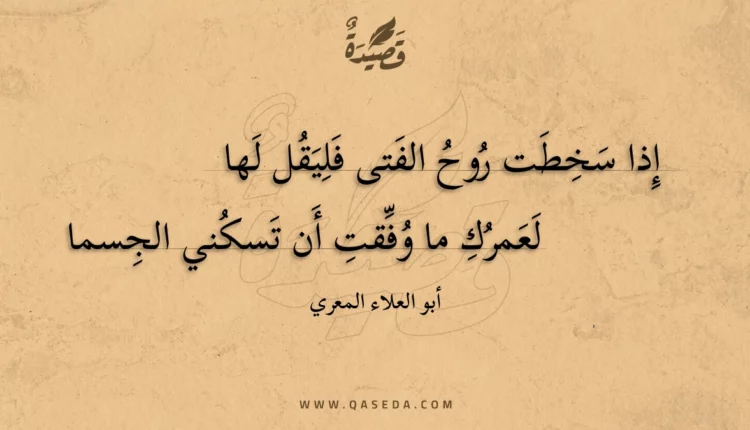 قَصِيدَةٌ
إِذا سَخِطَت رُوحُ الفَتى فَلِيَقُل لَها
لَعَمرُكِ ما وُفِّقتِ أَن تَسكُني الجِسما
أبو العلاء المعري
WWW.QASEDA.COM